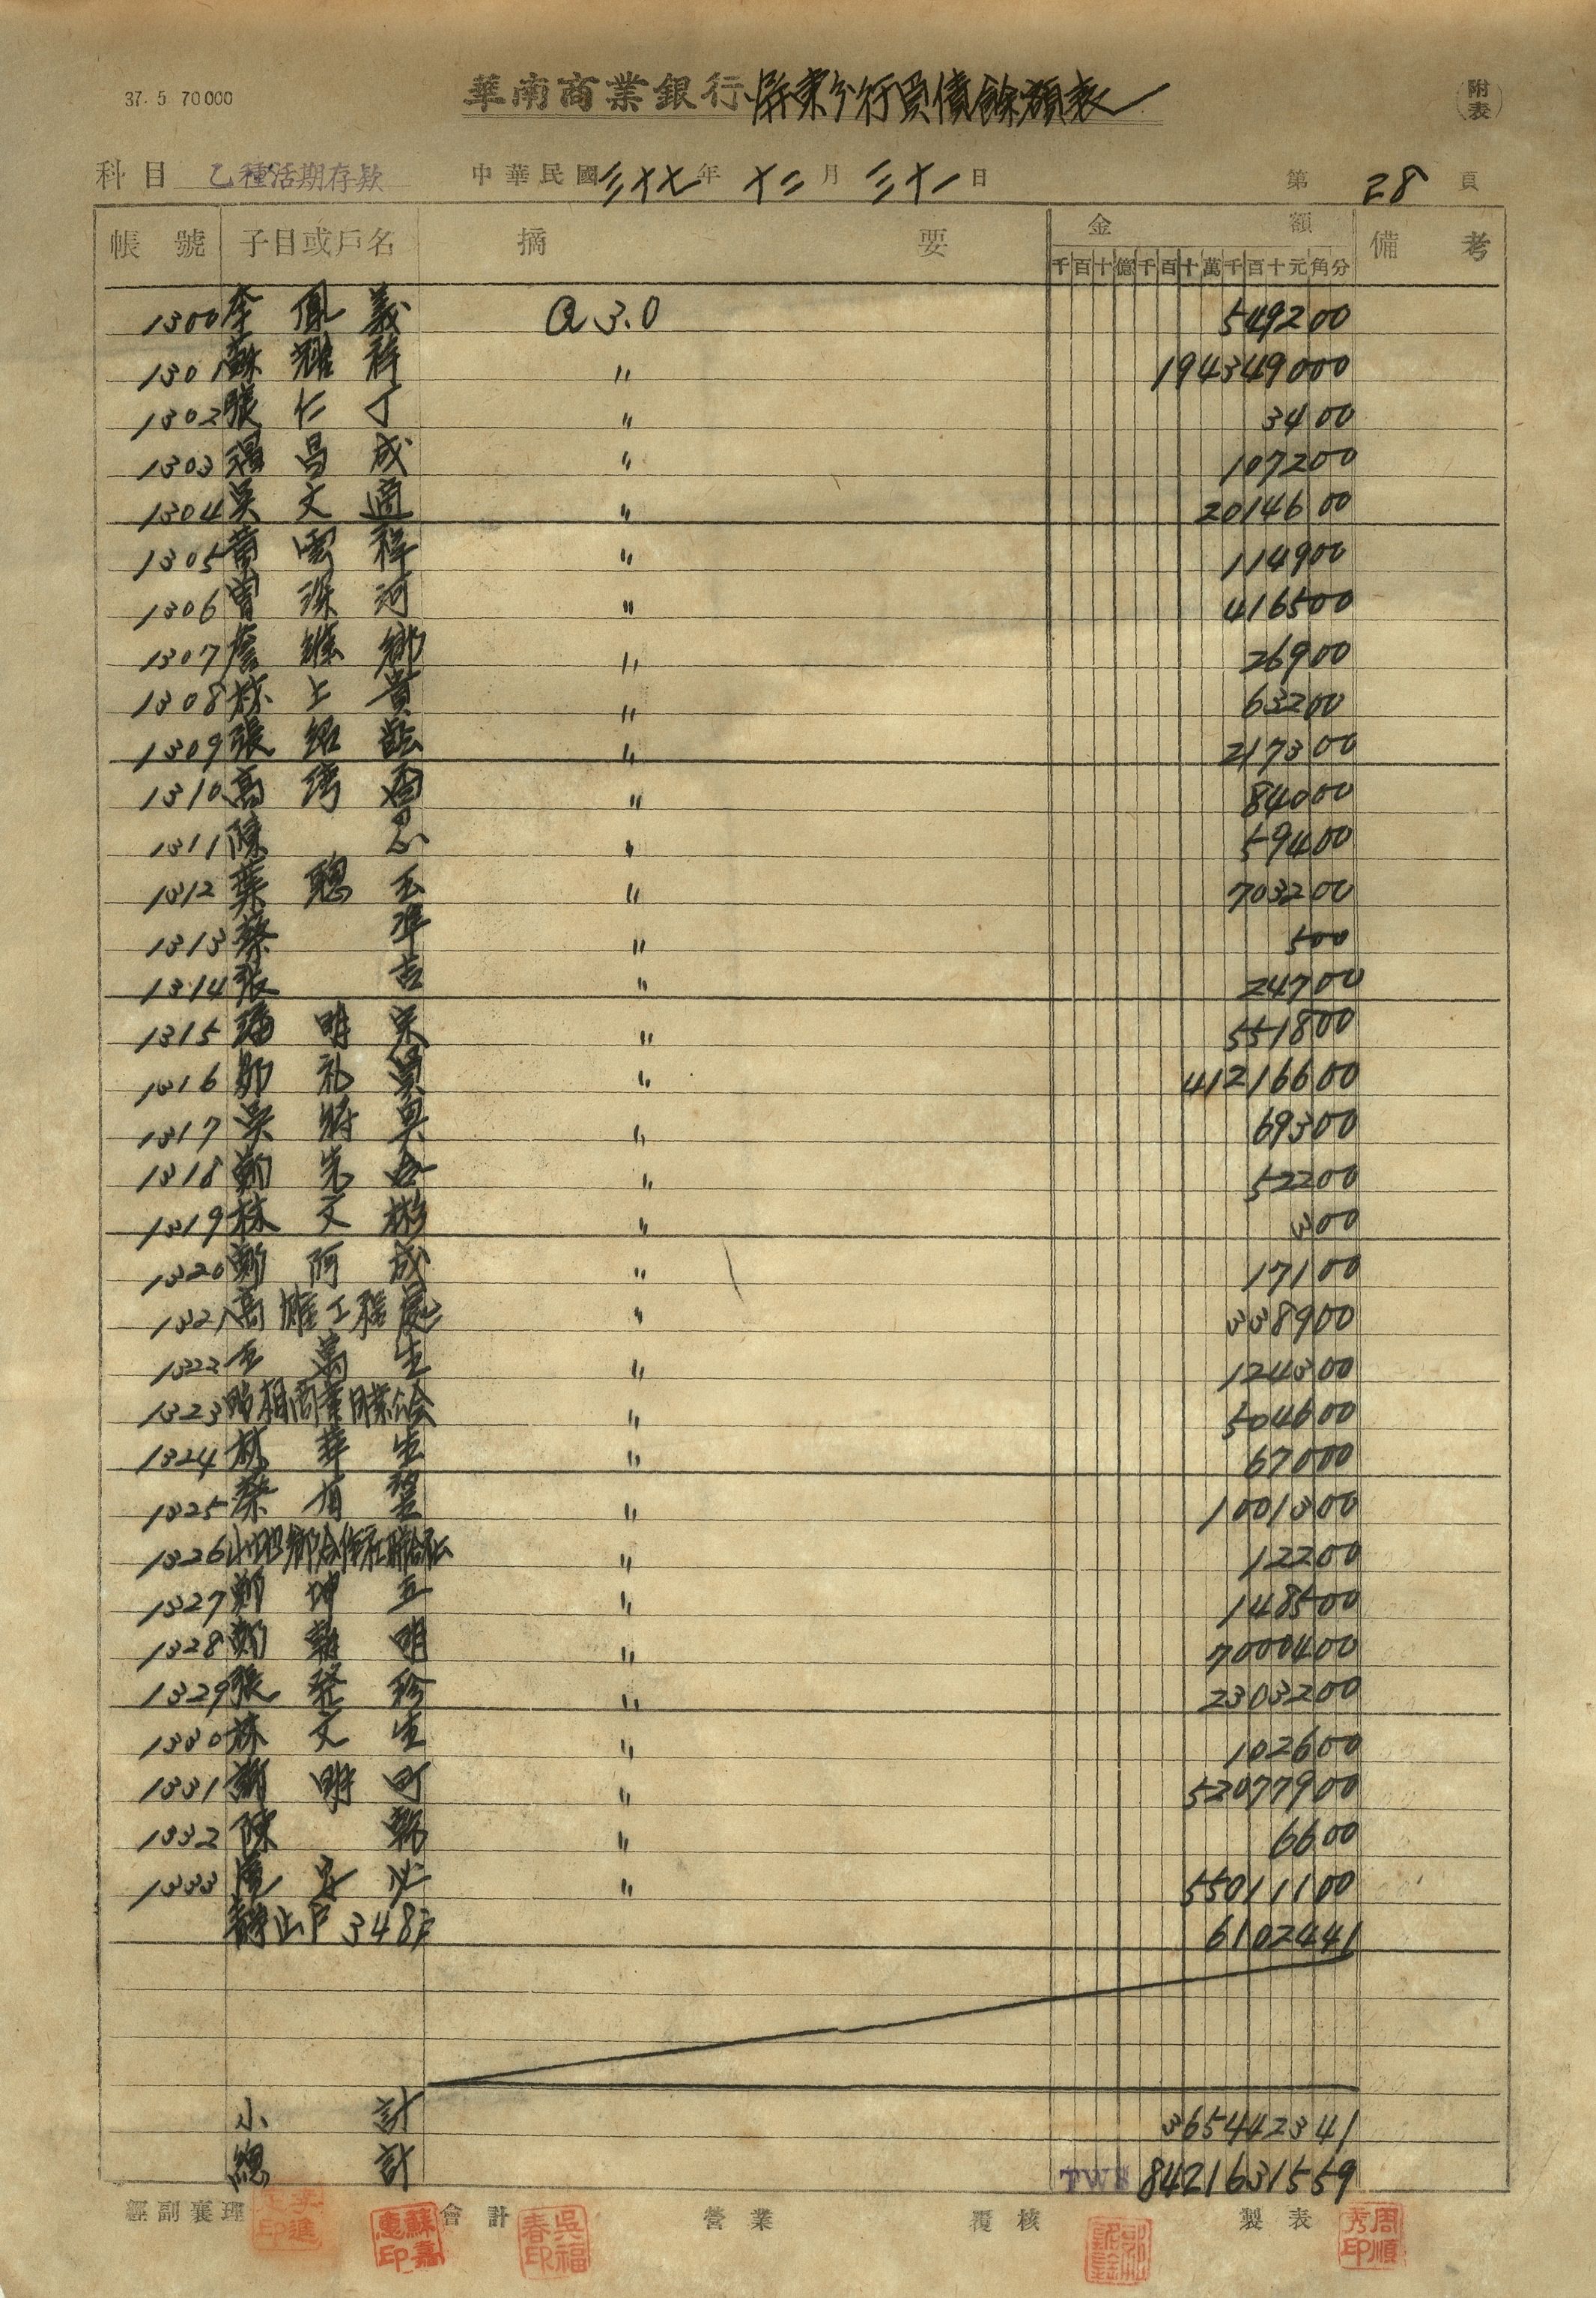 37. 5 70000
華南商業銀行屏東分行買債餘額表
附表
科目 乙種活期存款 中華民國三十七年 十二月 三十一日 第 28 頁
帳號 子目或戶名 摘要 金額 備考
千百十億千百十萬千百十元角分
1300 李鳳義 @ 3.0 549200
1301 蘇耀祥 〃 194349000
1302 張仁丁 〃 3400
1303 楊昌成 〃 107200
1304 吳文適 〃 2014600
1305 黃雲祥 〃 114900
1306 曾深河 〃 416500
1307 詹維 〃 26900
1308 林上貴 〃 63200
1309 張紹 〃 217300
1310 高 〃 84000
1311 陳 〃 59400
1312 葉聰玉 〃 703200
1313 蔡準 〃 500
1314 張吉 〃 24700
1315 潘明 〃 551800
1316 礼 〃 41216600
1317 吳 〃 69300
1318 鄭先 〃 52200
1319 林文彬 〃 300
1320 鄭阿成 〃 17100
1321 高雄工程處 〃 338900
1322 王萬生 〃 124300
1323 照相商業同業公会 〃 504600
1324 林華生 〃 67000
1325 蔡 〃 1001300
1326 山地鄉合作社聯合社 〃 12200
1327 鄭坤五 〃 148500
1328 鄭明 〃 7000400
1329 張登珍 〃 2303200
1330 林文生 〃 102600
1331 明町 〃 52077900
1332 陳 〃 6600
1333 〃 55011100
靜止戶348戶 6102441
小計 365442341
總計 TW$ 8421631559
經副襄理 會計 營業 覆核 製表
蘇嘉惠印
吳福春印
周順秀印